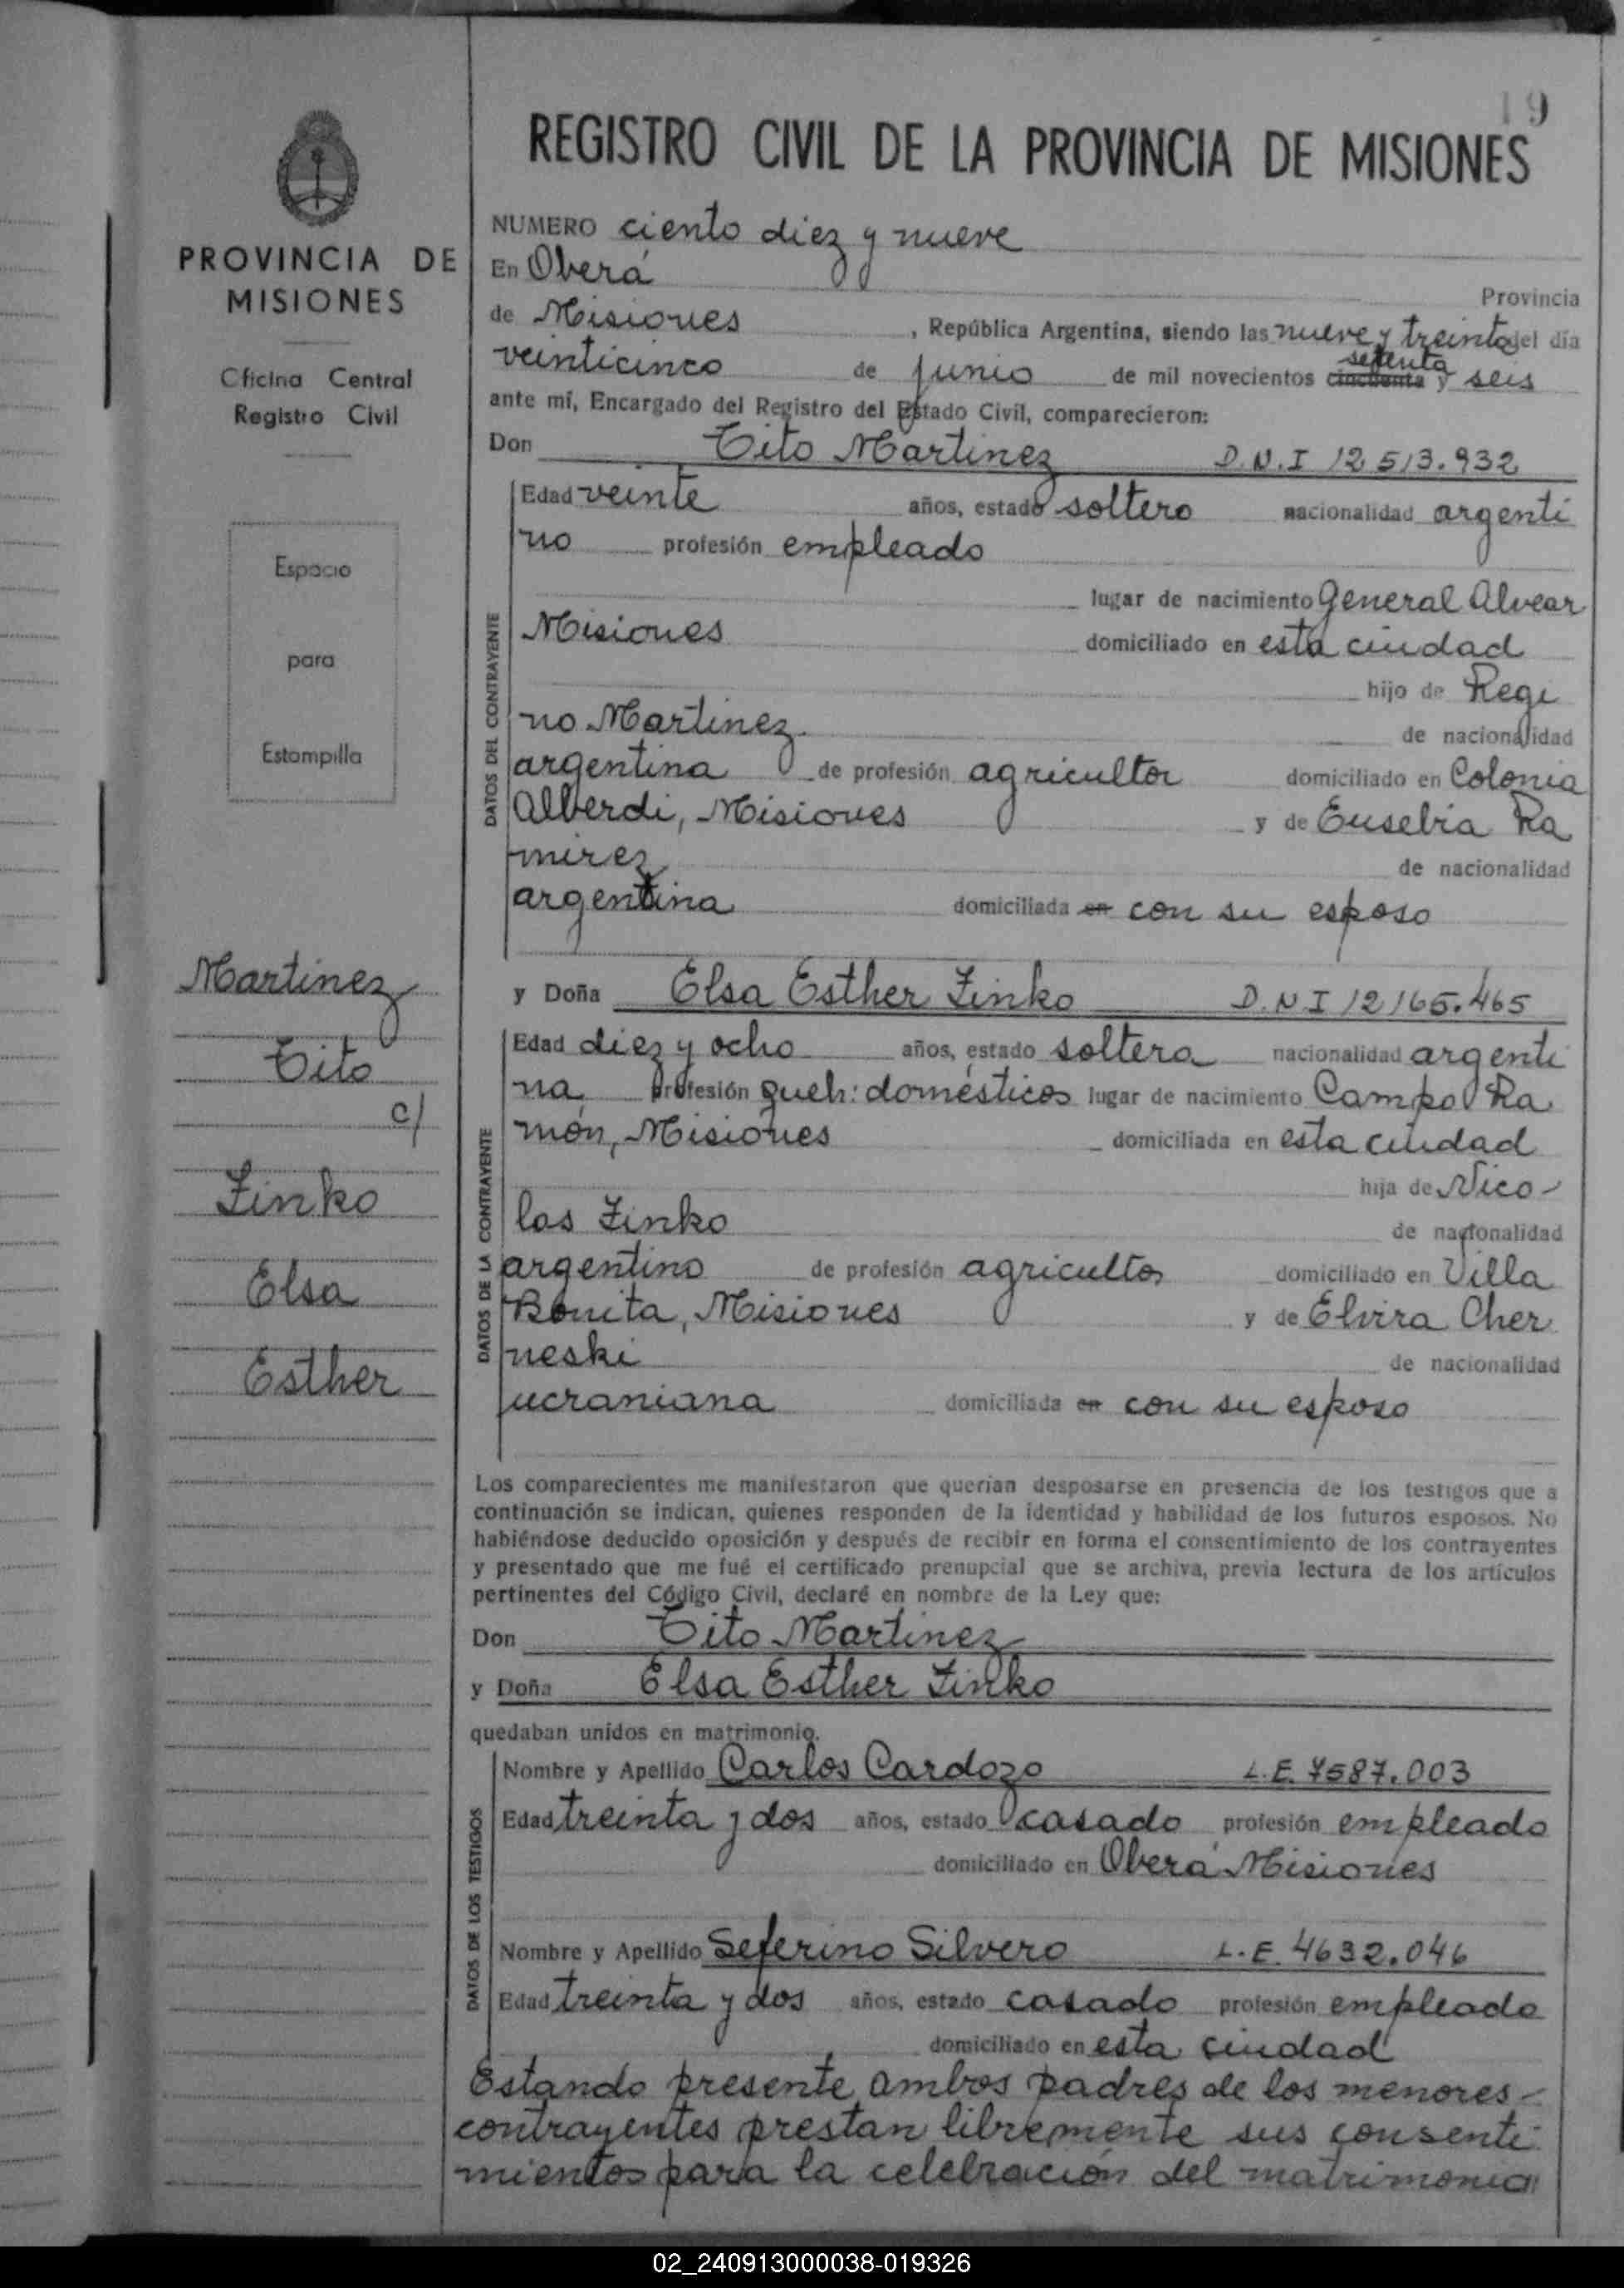 19
REGISTRO CIVIL DE LA PROVINCIA DE MISIONES
PROVINCIA DE
MISIONES
Oficina Central
Registro Civil
Espacio
para
Estampilla
Martinez
Tito
c/
Zinko
Elsa
Esther
NUMERO ciento diez y nueve
En Oberá
Provincia
de Misiones , República Argentina, siendo las nueve y treinta del día
setenta
veinticinco de junio de mil novecientos cincuenta y seis
ante mí, Encargado del Registro del Estado Civil, comparecieron:
Don Tito Martinez D.N.I 12513.932
DATOS DEL CONTRAYENTE
Edad veinte años, estado soltero nacionalidad argenti
no profesión empleado
lugar de nacimiento General Alvear
Misiones domiciliado en esta ciudad
hijo de Regi
no Martinez de nacionalidad
argentina de profesión agricultor domiciliado en Colonia
Alberdi, Misiones y de Eusebia Ra
mirez de nacionalidad
argentina domiciliada en con su esposo
y Doña Elsa Esther Zinko D.N.I 12165.465
DATOS DE LA CONTRAYENTE
Edad diez y ocho años, estado soltera nacionalidad argenti
na profesión queh: domésticos lugar de nacimiento Campo Ra
món, Misiones domiciliada en esta ciudad
hija de Nico-
las Zinko de nacionalidad
argentino de profesión agricultor domiciliado en Villa
Bonita, Misiones y de Elvira Cher
neski de nacionalidad
ucraniana domiciliada en con su esposo
Los comparecientes me manifestaron que querían desposarse en presencia de los testigos que a
continuación se indican, quienes responden de la identidad y habilidad de los futuros esposos. No
habiéndose deducido oposición y después de recibir en forma el consentimiento de los contrayentes
y presentado que me fué el certificado prenupcial que se archiva, previa lectura de los artículos
pertinentes del Código Civil, declaré en nombre de la Ley que:
Don Tito Martinez
y Doña Elsa Esther Zinko
quedaban unidos en matrimonio.
DATOS DE LOS TESTIGOS
Nombre y Apellido Carlos Cardozo L.E. 7587.003
Edad treinta y dos años, estado casado profesión empleado
domiciliado en Oberá Misiones
Nombre y Apellido Seferino Silvero L.E. 4632.046
Edad treinta y dos años, estado casado profesión empleado
domiciliado en esta ciudad
Estando presente ambos padres de los menores-
contrayentes prestan libremente sus consenti
mientos para la celebración del matrimonio
02_240913000038-019326